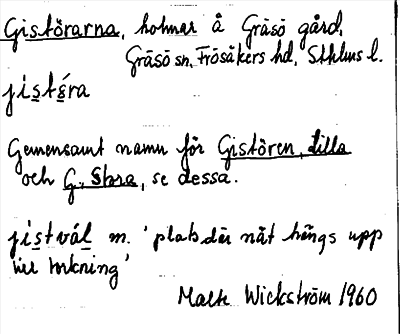 Gistörarna, holmar å Gräsö gård,
Gräsö sn, Frösåkers hd, Sthlms l.
jistǿra
Gemensamt namn för Gistören, Lilla
och G., Stora, se dessa.
jistväl m. 'plats där nät hängs upp
till torkning'
Malte Wickström 1960